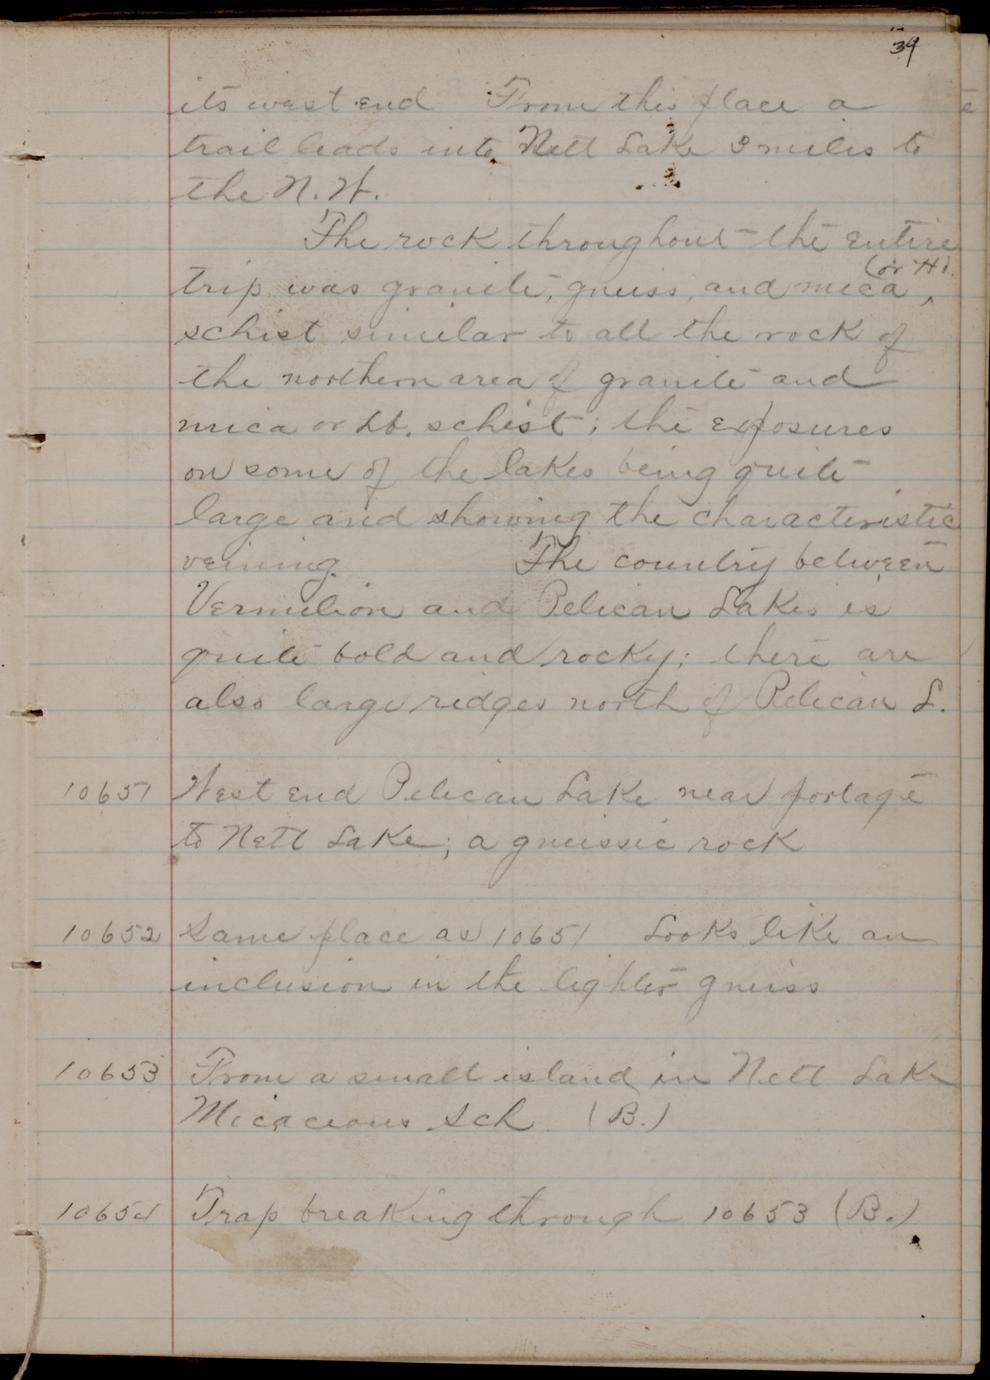 39
its west end From this place a
trail leads into Nett Lake 3 miles to
the N. W.
The rock throughout the entire
trip was granite, gneiss, and mica (or H).
schist similar to all the rock of
the northern area of granite and
mica or hb. schist; the exposures
on some of the lakes being quite
large and showing the characteristic
veining. The country between
Vermilion and Pelican Lakes is
quite bold and rocky; there are
also large ridges north of Pelican L.
10651 West end Pelican Lake near portage
to Nett Lake; a gneissic rock
10652 Same place as 10651 Looks like an
inclusion in the lighter gneiss
10653 From a small island in Nett Lake
Micaceous Sch. (B.)
10654 Trap breaking through 10653 (B.)